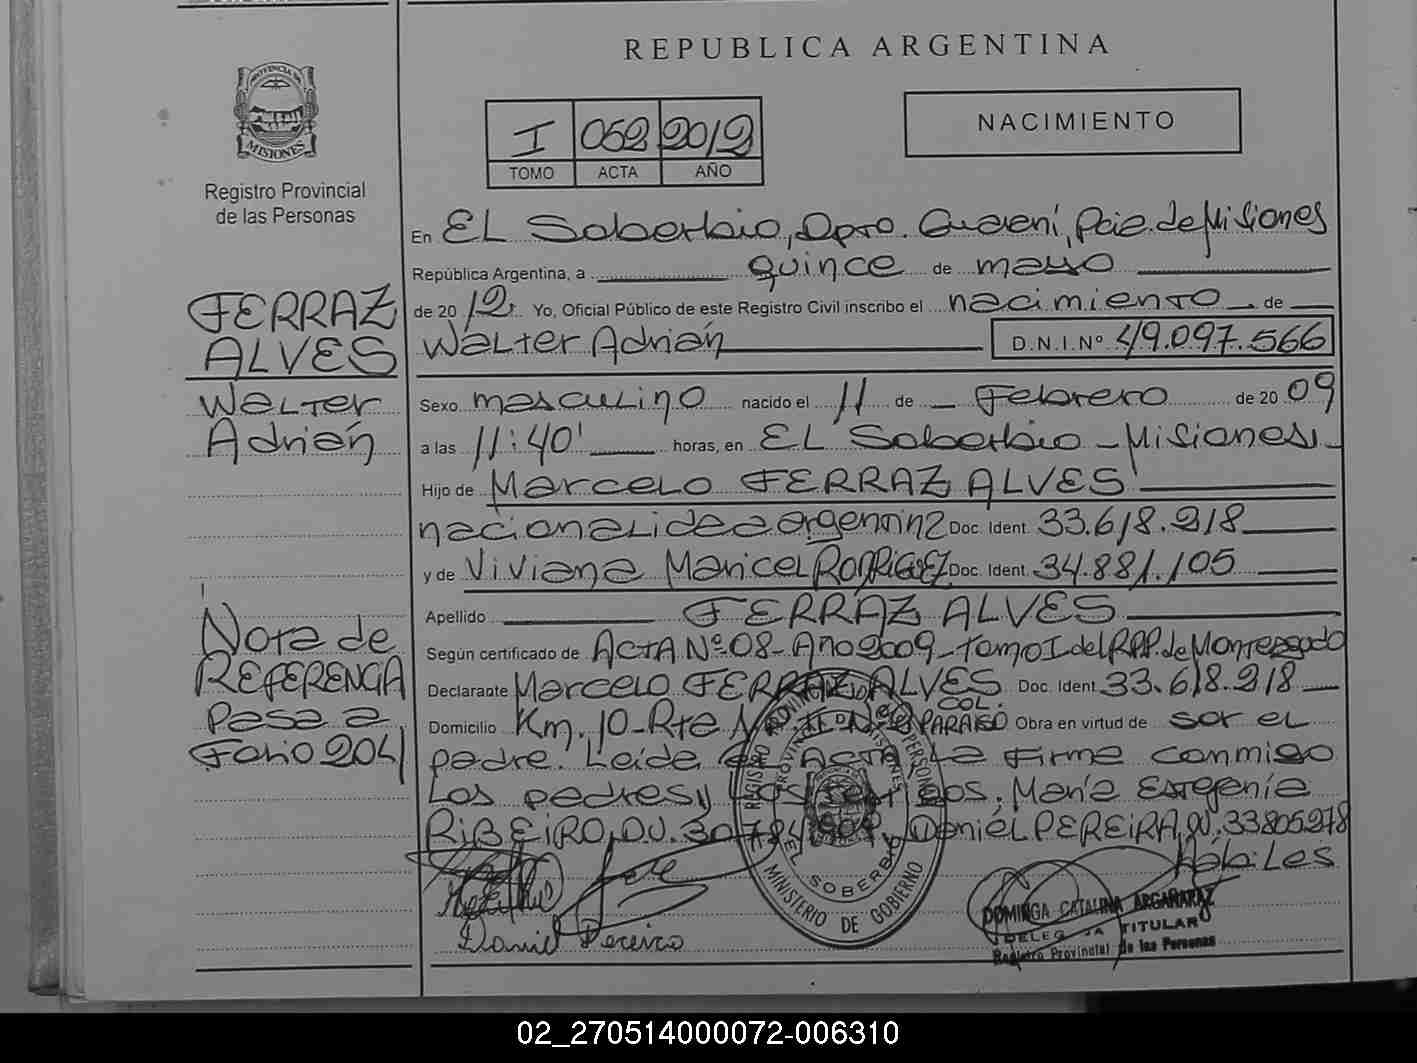 REPUBLICA ARGENTINA
PROVINCIA DE
MISIONES
Registro Provincial
de las Personas
I 052 2012
TOMO ACTA AÑO
NACIMIENTO
FERRAZ
ALVES
Walter
Adrián
Nota de
REFERENCIA
Pasa a
Folio 204
En EL Soberbio, Dpto. Guaraní, Pcia. de Misiones
República Argentina, a quince de mayo
de 2012 Yo, Oficial Público de este Registro Civil inscribo el nacimiento de
Walter Adrián D.N.I.Nº 49.097.566
Sexo masculino nacido el 11 de Febrero de 2009
a las 11:40' horas, en EL Soberbio - Misiones.-
Hijo de Marcelo FERRAZ ALVES
nacionalidad argentina Doc. Ident. 33.618.218
y de Viviana Maricel RODRIGUEZ Doc. Ident. 34.881.105
Apellido FERRAZ ALVES
Según certificado de ACTA Nº 08 - Año 2009 - Tomo I del RPP. de Monteagudo
Declarante Marcelo FERRAZ ALVES Doc. Ident. 33.618.218
Domicilio Km. 10 - Rte COL. PARAISO Obra en virtud de ser el
padre. Leída el ACTA, La firma conmigo
Los padres y Los . María Estefenía
RIBEIRO, D.U. Daniel PEREIRA, D.U. 33805278
Hábiles
Daniel Pereira
MINISTERIO DE GOBIERNO
EL SOBERBIO
DOMINGA CATALINA ARGAÑARAZ
TITULAR
Registro Provincial de las Personas
02_270514000072-006310